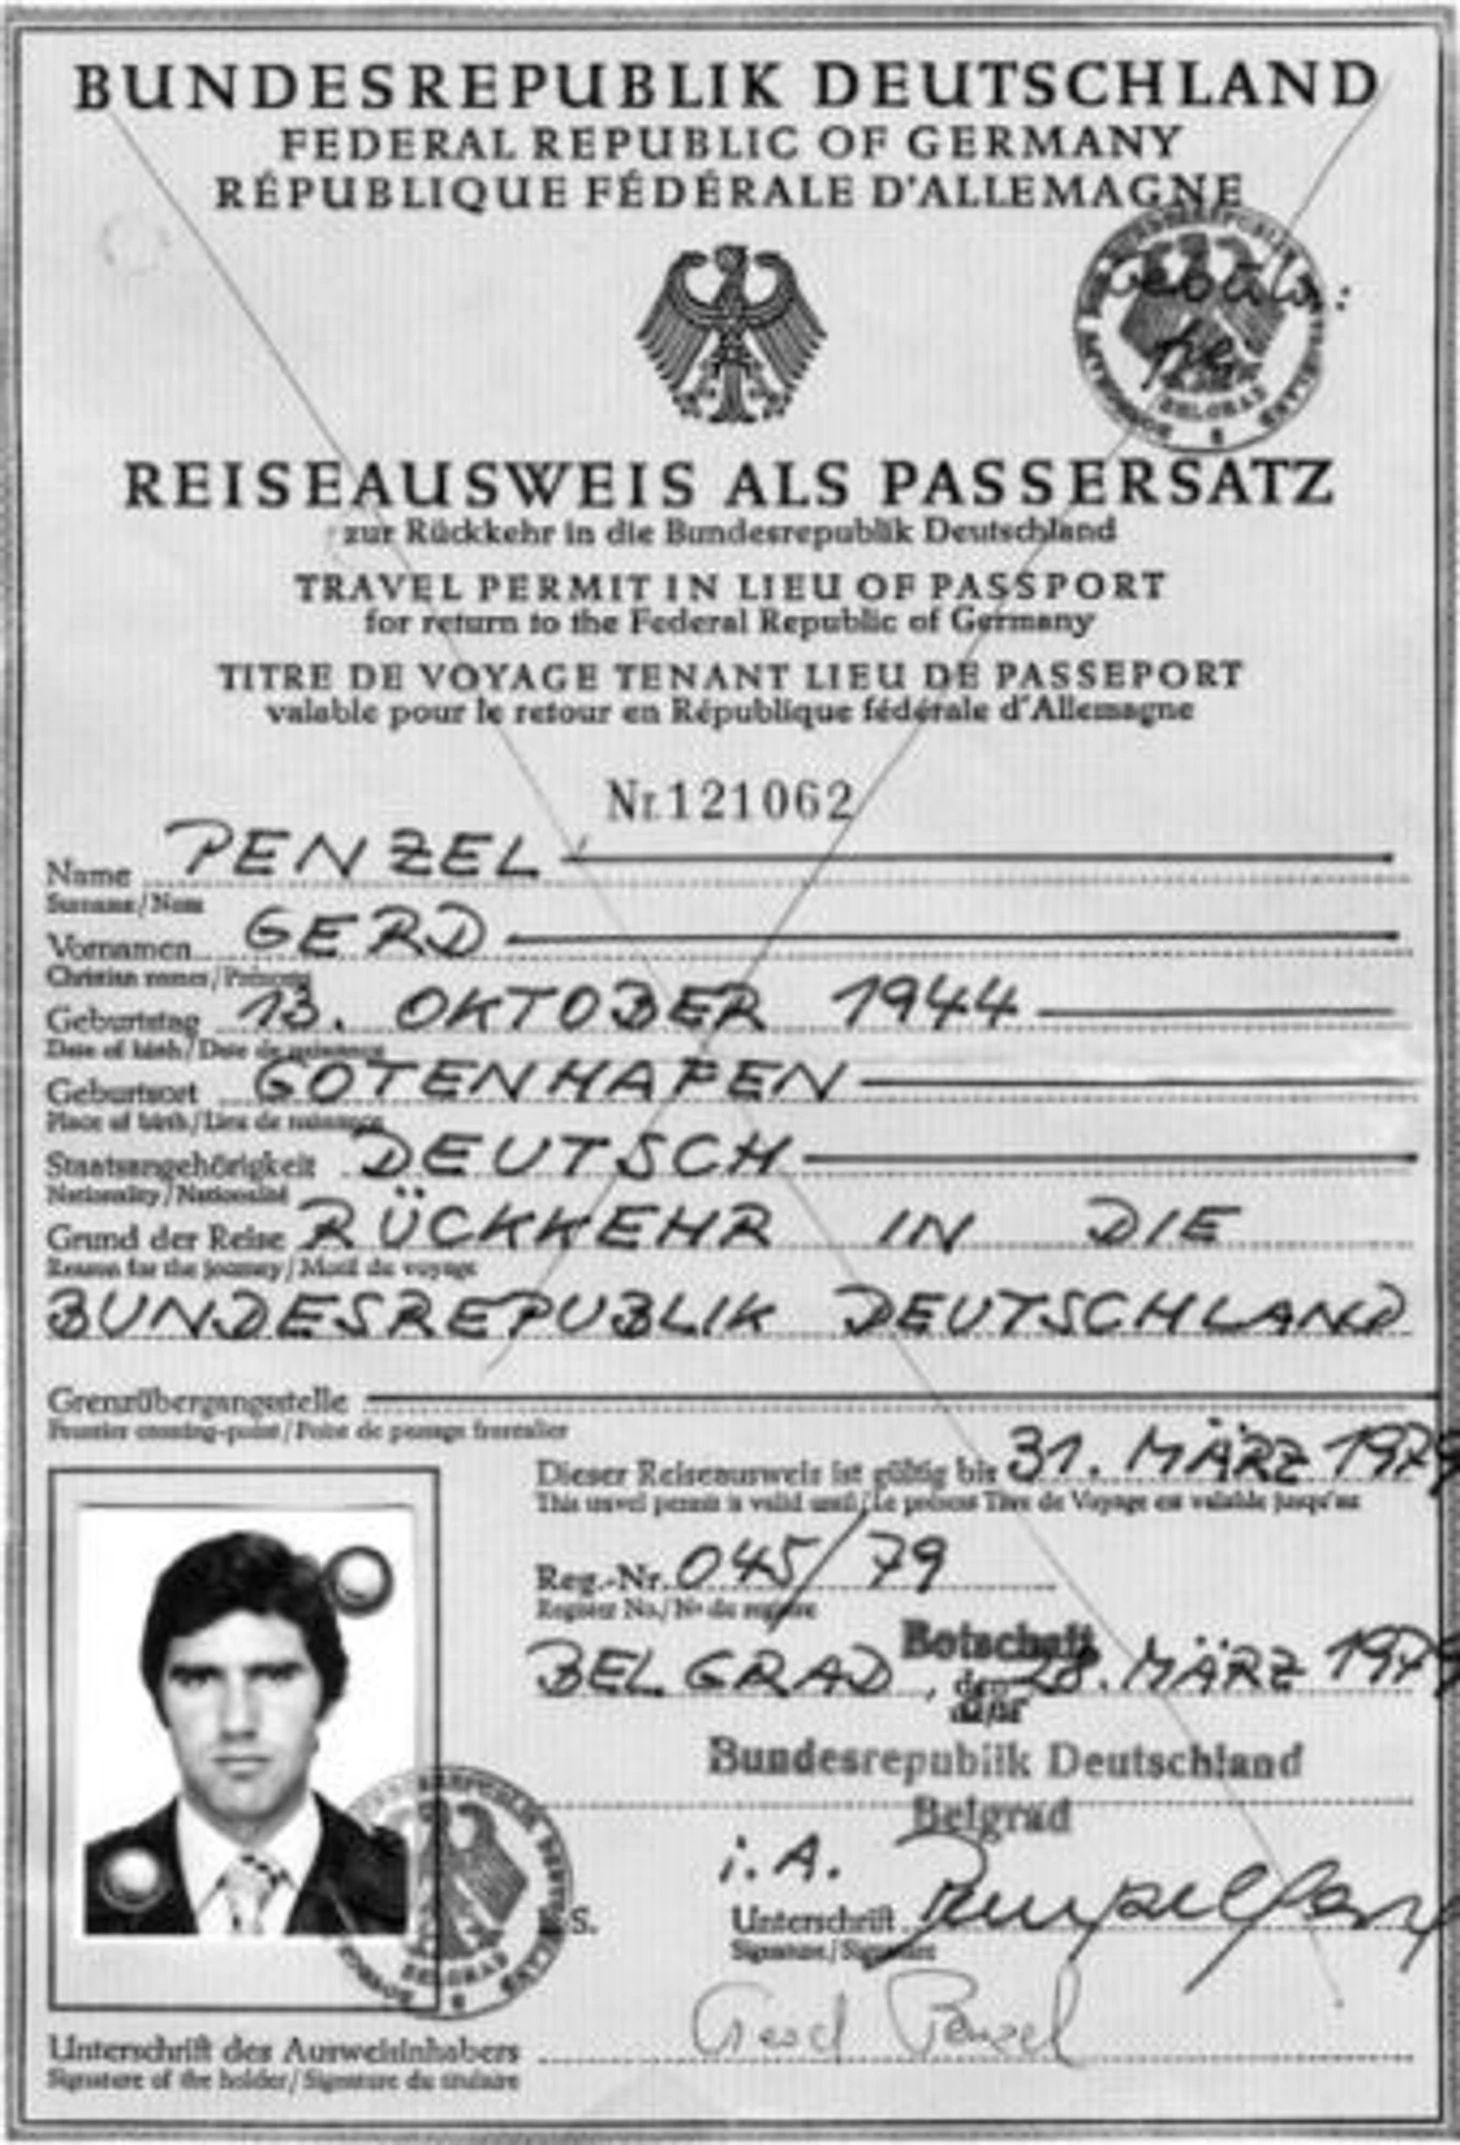 BUNDESREPUBLIK DEUTSCHLAND
FEDERAL REPUBLIC OF GERMANY
RÉPUBLIQUE FÉDÉRALE D'ALLEMAGNE
REISEAUSWEIS ALS PASSERSATZ
zur Rückkehr in die Bundesrepublik Deutschland
TRAVEL PERMIT IN LIEU OF PASSPORT
for return to the Federal Republic of Germany
TITRE DE VOYAGE TENANT LIEU DE PASSEPORT
valable pour le retour en République fédérale d'Allemagne
Nr. 121062
Name PENZEL
Surname/Nom
Vornamen GERD
Christian names/Prénoms
Geburtstag 13. OKTOBER 1944
Date of birth/Date de naissance
Geburtsort GOTENHAFEN
Place of birth/Lieu de naissance
Staatsangehörigkeit DEUTSCH
Nationality/Nationalité
Grund der Reise RÜCKKEHR IN DIE
Reason for the journey/Motif du voyage
BUNDESREPUBLIK DEUTSCHLAND
Grenzübergangsstelle
Frontier crossing-point/Point de passage frontalier
Dieser Reiseausweis ist gültig bis 31. MÄRZ 1979
This travel permit is valid until/Le présent Titre de Voyage est valable jusqu'au
Reg.-Nr. 045/79
Register No./Nº du registre
BELGRAD, den 28. MÄRZ 1979
Botschaft
der
Bundesrepublik Deutschland
Belgrad
i. A.
L.S.
Unterschrift
Signature/Signature
Gerd Penzel
Unterschrift des Ausweisinhabers
Signature of the holder/Signature du titulaire
BELGRAD